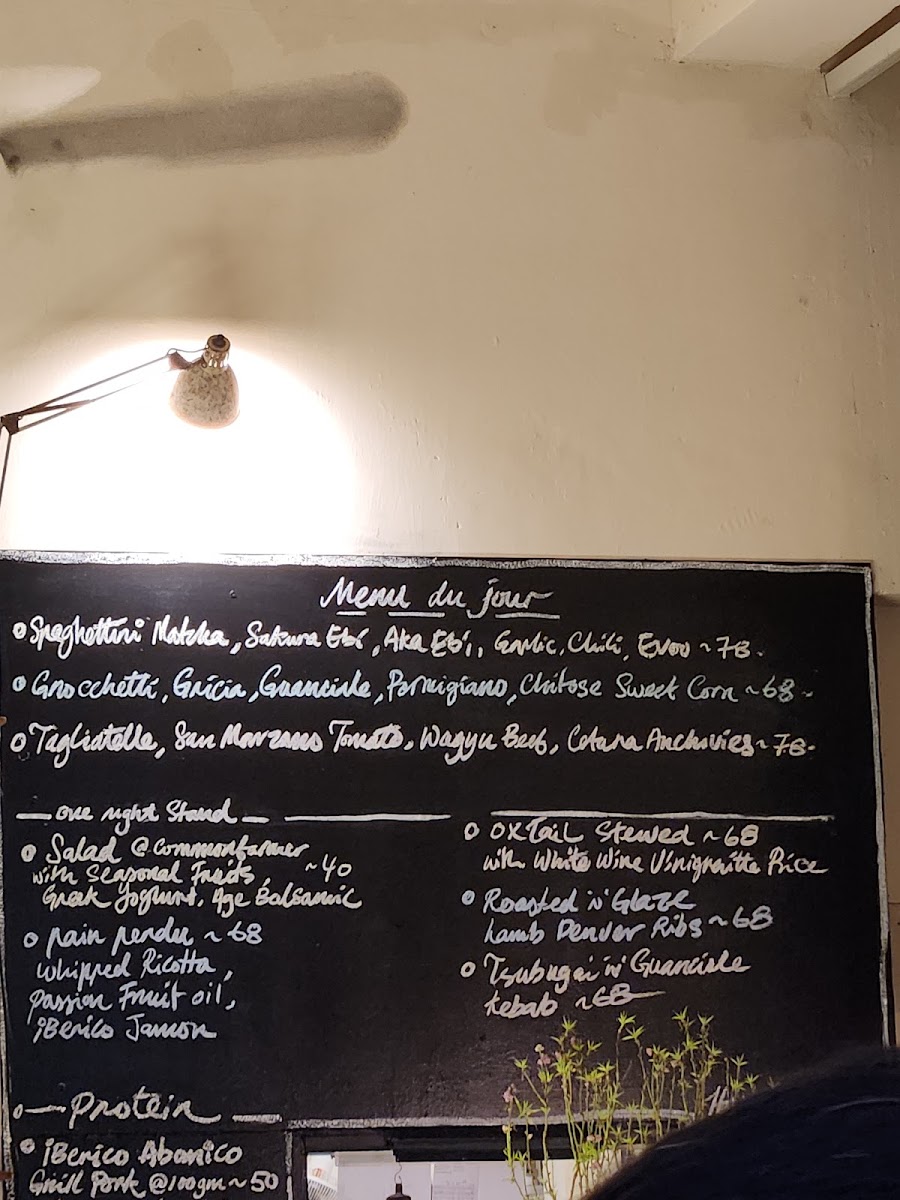 Menu du jour
Spaghettini Matcha, Sakura Ebi, Aka Ebi, Garlic, Chili, Evoo ~ 78.
Gnocchetti, Gricia, Guanciale, Parmigiano, Chitose Sweet Corn ~ 68 ~
Tagliatelle, San Marzano Tomato, Wagyu Beef, Cetara Anchovies ~ 78.
one night Stand
Salad @commonfarmer
with Seasonal Fruits, ~40
Greek Yoghurt, Age Balsamic
pain perdu ~ 68
whipped Ricotta,
passion Fruit oil,
iBerico Jamon
OxTail Stewed ~ 68
with White Wine Vinigraitte Rice
Roasted 'n' Glaze
Lamb Denver Ribs ~ 68
Tsubugai 'n' Guanciale
kebab ~68
Protein
iBerico Abanico
Grill Pork @100gm ~ 50